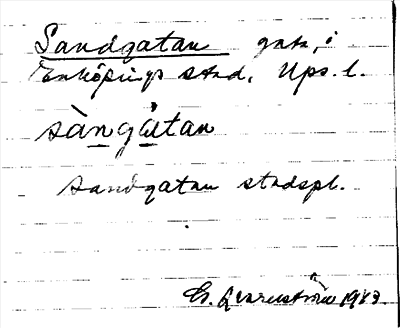 Sandgatan gata, i
Enköpings stad, Ups. l.
sàngátan
Sandgatan stadspl.
1983